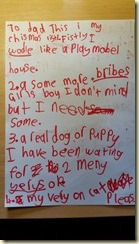 To dad This i my
chismas list fistly I
woole like a Playmobel
house.
2. a some more bribes
girls boy I don't mind
but I need
Some.
3. a real dog or Puppy
I have been wating
for 2 meny
yelys ok
my very on cat
Pleas